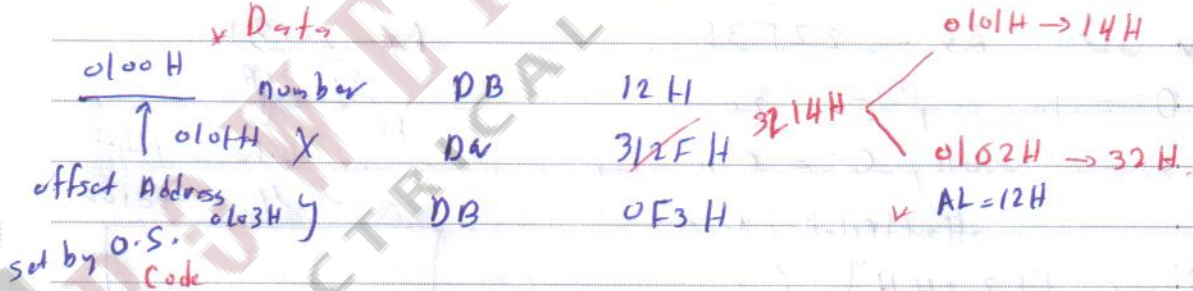 ✓ Data 0101H → 14H
0100H number DB 12H 3214H
↑ 0101H X DW 312FH 0102H → 32H
offset Address 0103H y DB 0F3H ✓ AL=12H
set by O.S.
Code